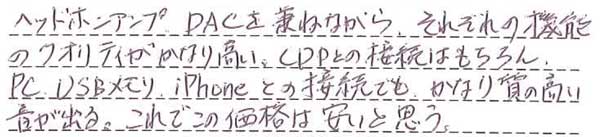 ヘッドホンアンプ、DACを兼ねながら、それぞれの機能
のクオリティがかなり高い。CDPとの接続はもちろん、
PC、USBメモリ、iPhoneとの接続でも、かなり質の高い
音が出る。これでこの価格は安いと思う。